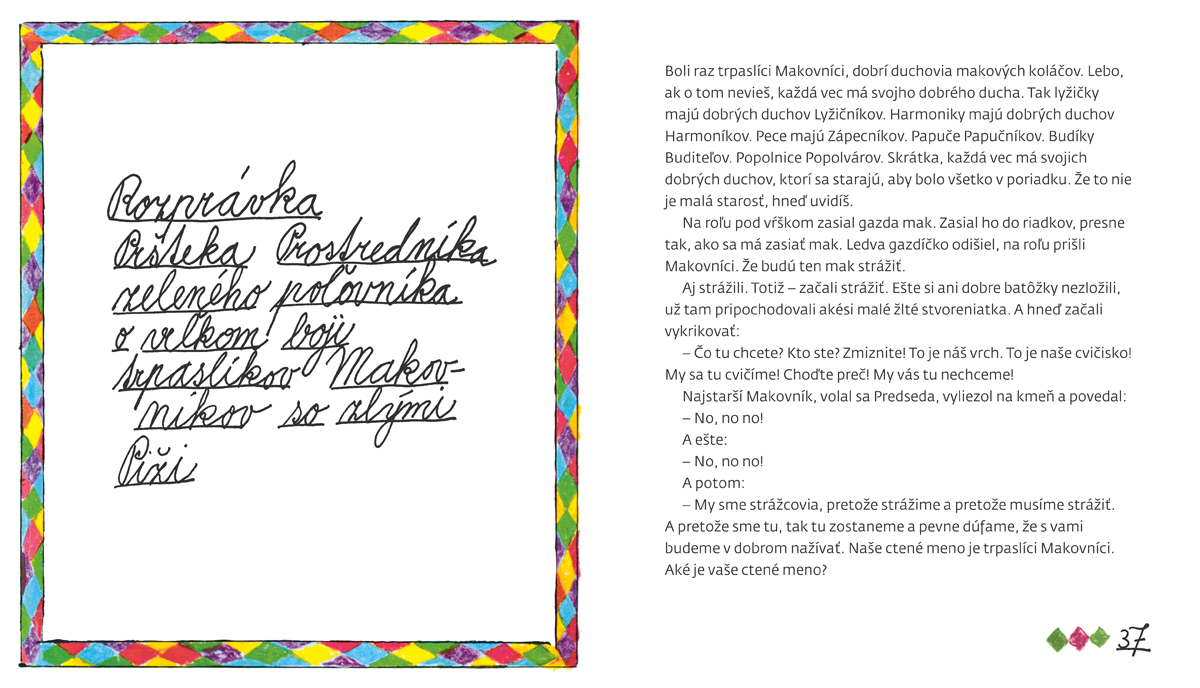 Rozprávka
Pršteka Prostredníka
zeleného poľovníka
o veľkom boji
trpaslíkov Makov-
níkov so zlými
Piži
Boli raz trpaslíci Makovníci, dobrí duchovia makových koláčov. Lebo,
ak o tom nevieš, každá vec má svojho dobrého ducha. Tak lyžičky
majú dobrých duchov Lyžičníkov. Harmoniky majú dobrých duchov
Harmoníkov. Pece majú Zápecníkov. Papuče Papučníkov. Budíky
Buditeľov. Popolnice Popolvárov. Skrátka, každá vec má svojich
dobrých duchov, ktorí sa starajú, aby bolo všetko v poriadku. Že to nie
je malá starosť, hneď uvidíš.
Na roľu pod vŕškom zasial gazda mak. Zasial ho do riadkov, presne
tak, ako sa má zasiať mak. Ledva gazdíčko odišiel, na roľu prišli
Makovníci. Že budú ten mak strážiť.
Aj strážili. Totiž – začali strážiť. Ešte si ani dobre batôžky nezložili,
už tam pripochodovali akési malé žlté stvoreniatka. A hneď začali
vykrikovať:
– Čo tu chcete? Kto ste? Zmiznite! To je náš vrch. To je naše cvičisko!
My sa tu cvičíme! Choďte preč! My vás tu nechceme!
Najstarší Makovník, volal sa Predseda, vyliezol na kmeň a povedal:
– No, no no!
A ešte:
– No, no no!
A potom:
– My sme strážcovia, pretože strážime a pretože musíme strážiť.
A pretože sme tu, tak tu zostaneme a pevne dúfame, že s vami
budeme v dobrom nažívať. Naše ctené meno je trpaslíci Makovníci.
Aké je vaše ctené meno?
37